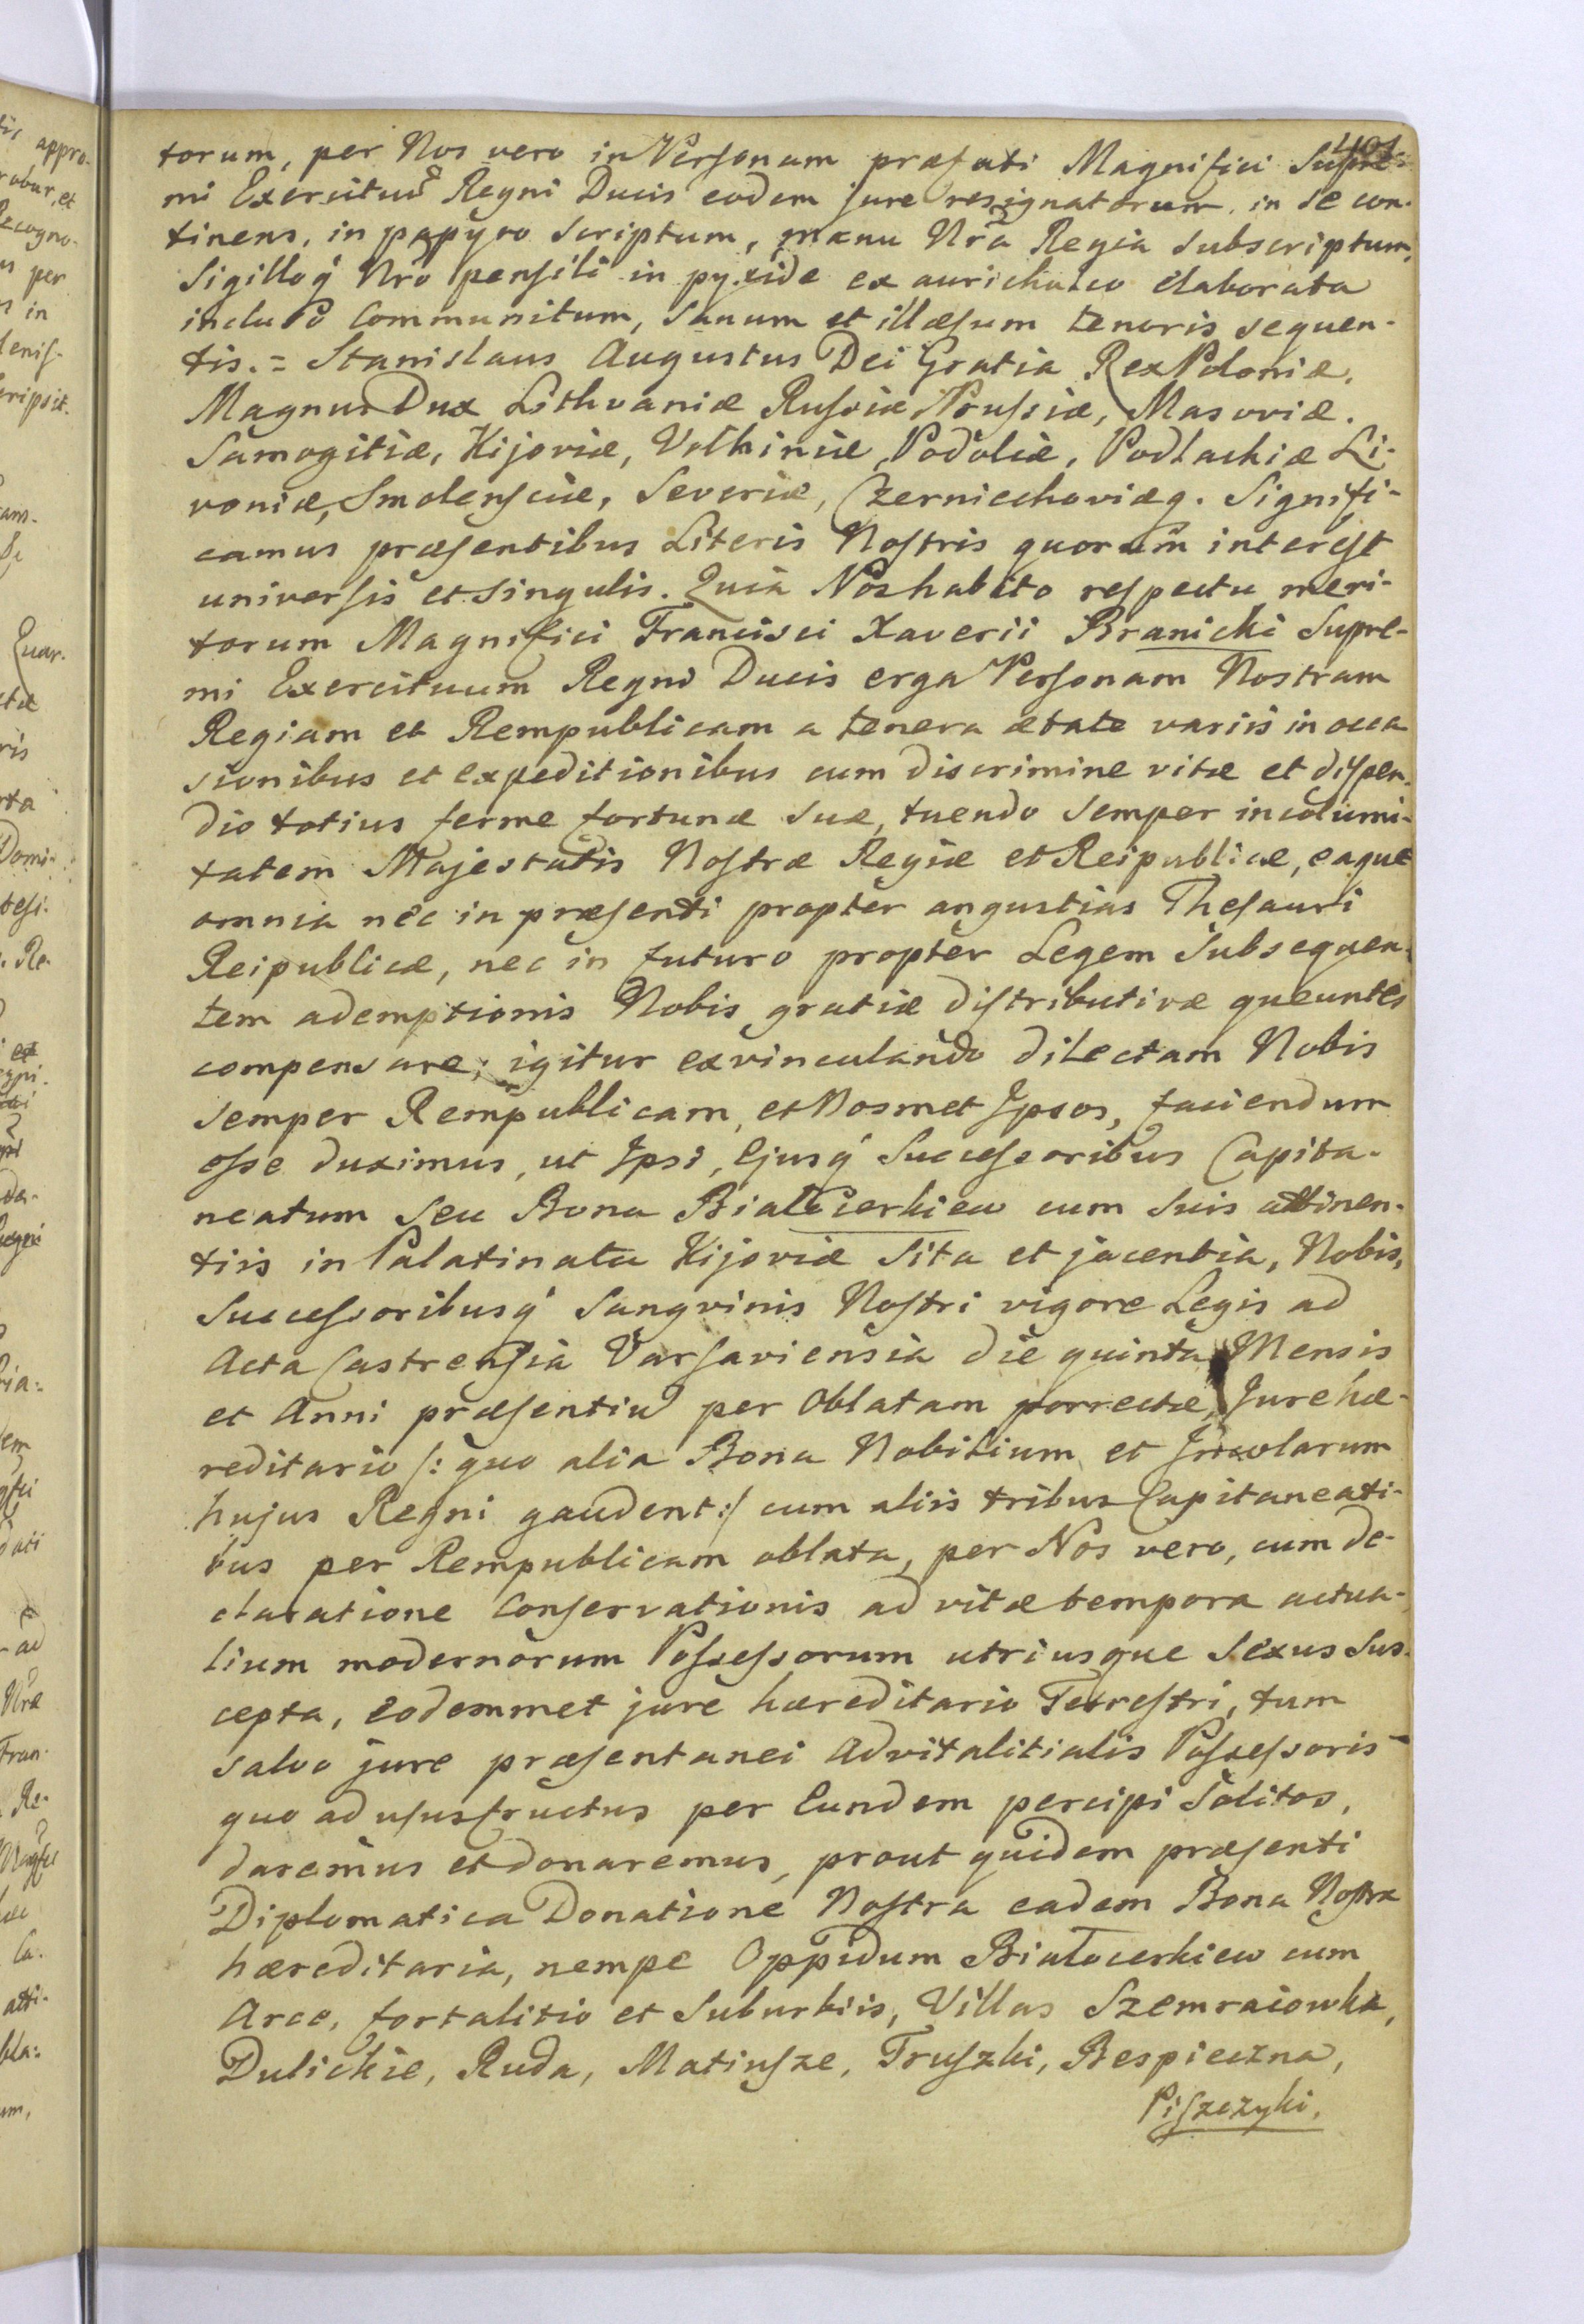 401
torum, per Nos vero in Personam præfati Magnifici Supre-
mi Exercituũ Regni Ducis eodem jure resignatorum, in se con-
tinens, in papyro scriptum, manu Nr̃a Regia subscriptum,
Sigilloq́ Nrõ pensili in pyxide ex aurichalco elaborata
incluso communitum, sanum et illæsum tenoris sequen-
tis. = Stanislaus Augustus Dei Gratia Rex Poloniæ,
Magnus Dux Lithvaniæ Russiæ Prussiæ, Masoviæ.
Samogitiæ, Kijoviæ, Volhiniæ, Podoliæ, Podlachiæ Li-
voniæ, Smolensciæ, Severiæ, Czerniechoviæq. Signifi-
camus præsentibus Literis Nostris quorum interest
universis et singulis. Quia Nos habito respectu meri-
torum Magnifici Francisci Xaverii Branicki Supre-
mi Exercituum Regni Ducis erga Personam Nostram
Regiam et Rempublicam a tenera ætate variis in occa
sionibus et expeditionibus cum discrimine vitæ et dispen-
dio totius ferme fortunæ suæ, tuendo semper incolumi-
tatem Majestatis Nostræ Regiæ et Reipublicæ, eaque
omnia nec in præsenti propter angustias Thesauri
Reipublicæ, nec in futuro propter Legem subsequen-
tem ademptionis Nobis gratiæ distributivæ queuntes
compensare; igitur exvinculando dilectam Nobis
semper Rempublicam, et Nosmet Ipsos, faciendum
esse duximus, ut Ipsi, Ejusq́ Successoribus Capita-
neatum seu Bona Białocerkiew cum suis attinen-
tiis in Palatinatu Kijoviæ sita et jacentia, Nobis,
Successoribusq́ Sangvinis Nostri vigore Legis ad
Acta Castrensia Varsaviensia die quinta Mensis
et Anni præsentiũ per Oblatam porrectæ, Jure hæ-
reditario /: quo alia Bona Nobilium et Incolarum
hujus Regni gaudent :/ cum aliis tribus Capitaneati-
bus per Rempublicam oblata, per Nos vero, cum de-
claratione conservationis ad vitæ tempora actua-
lium modernorum Possessorum utriusque Sexus sus-
cepta, eodemmet jure hæreditario Terrestri, tum
salvo jure præsentanei Advitalitialis Possessoris
quo ad ususfructus per Eundem percipi solitos,
daremus et donaremus, prout quidem præsenti
Diplomatica Donatione Nostra eadem Bona Nostra
hæreditaria, nempe Oppidum Białocerkiew cum
Arce, fortalitio et Suburbiis, Villas Szemraiowka,
Dulickie, Ruda, Matiusze, Truszki, Bespieczna,
Piszczyki,